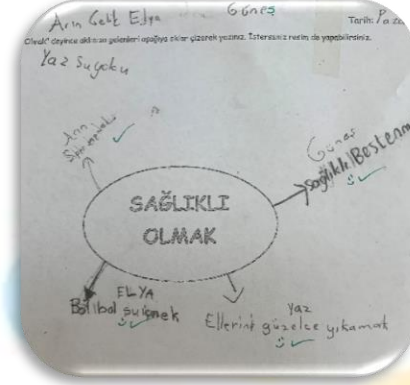 Arın Çelik Elya
Güneş
Tarih: Paza
Olmak" deyince aklınıza gelenleri aşağıya oklar çizerek yazınız. İsterseniz resim de yapabilirsiniz.
Yaz
Arın
Spor yapmak
Güneş
Sağlıklı Beslenm
SAĞLIKLI
OLMAK
ELYA
Bol bol su içmek
Yaz
Ellerini güzelce yıkamak